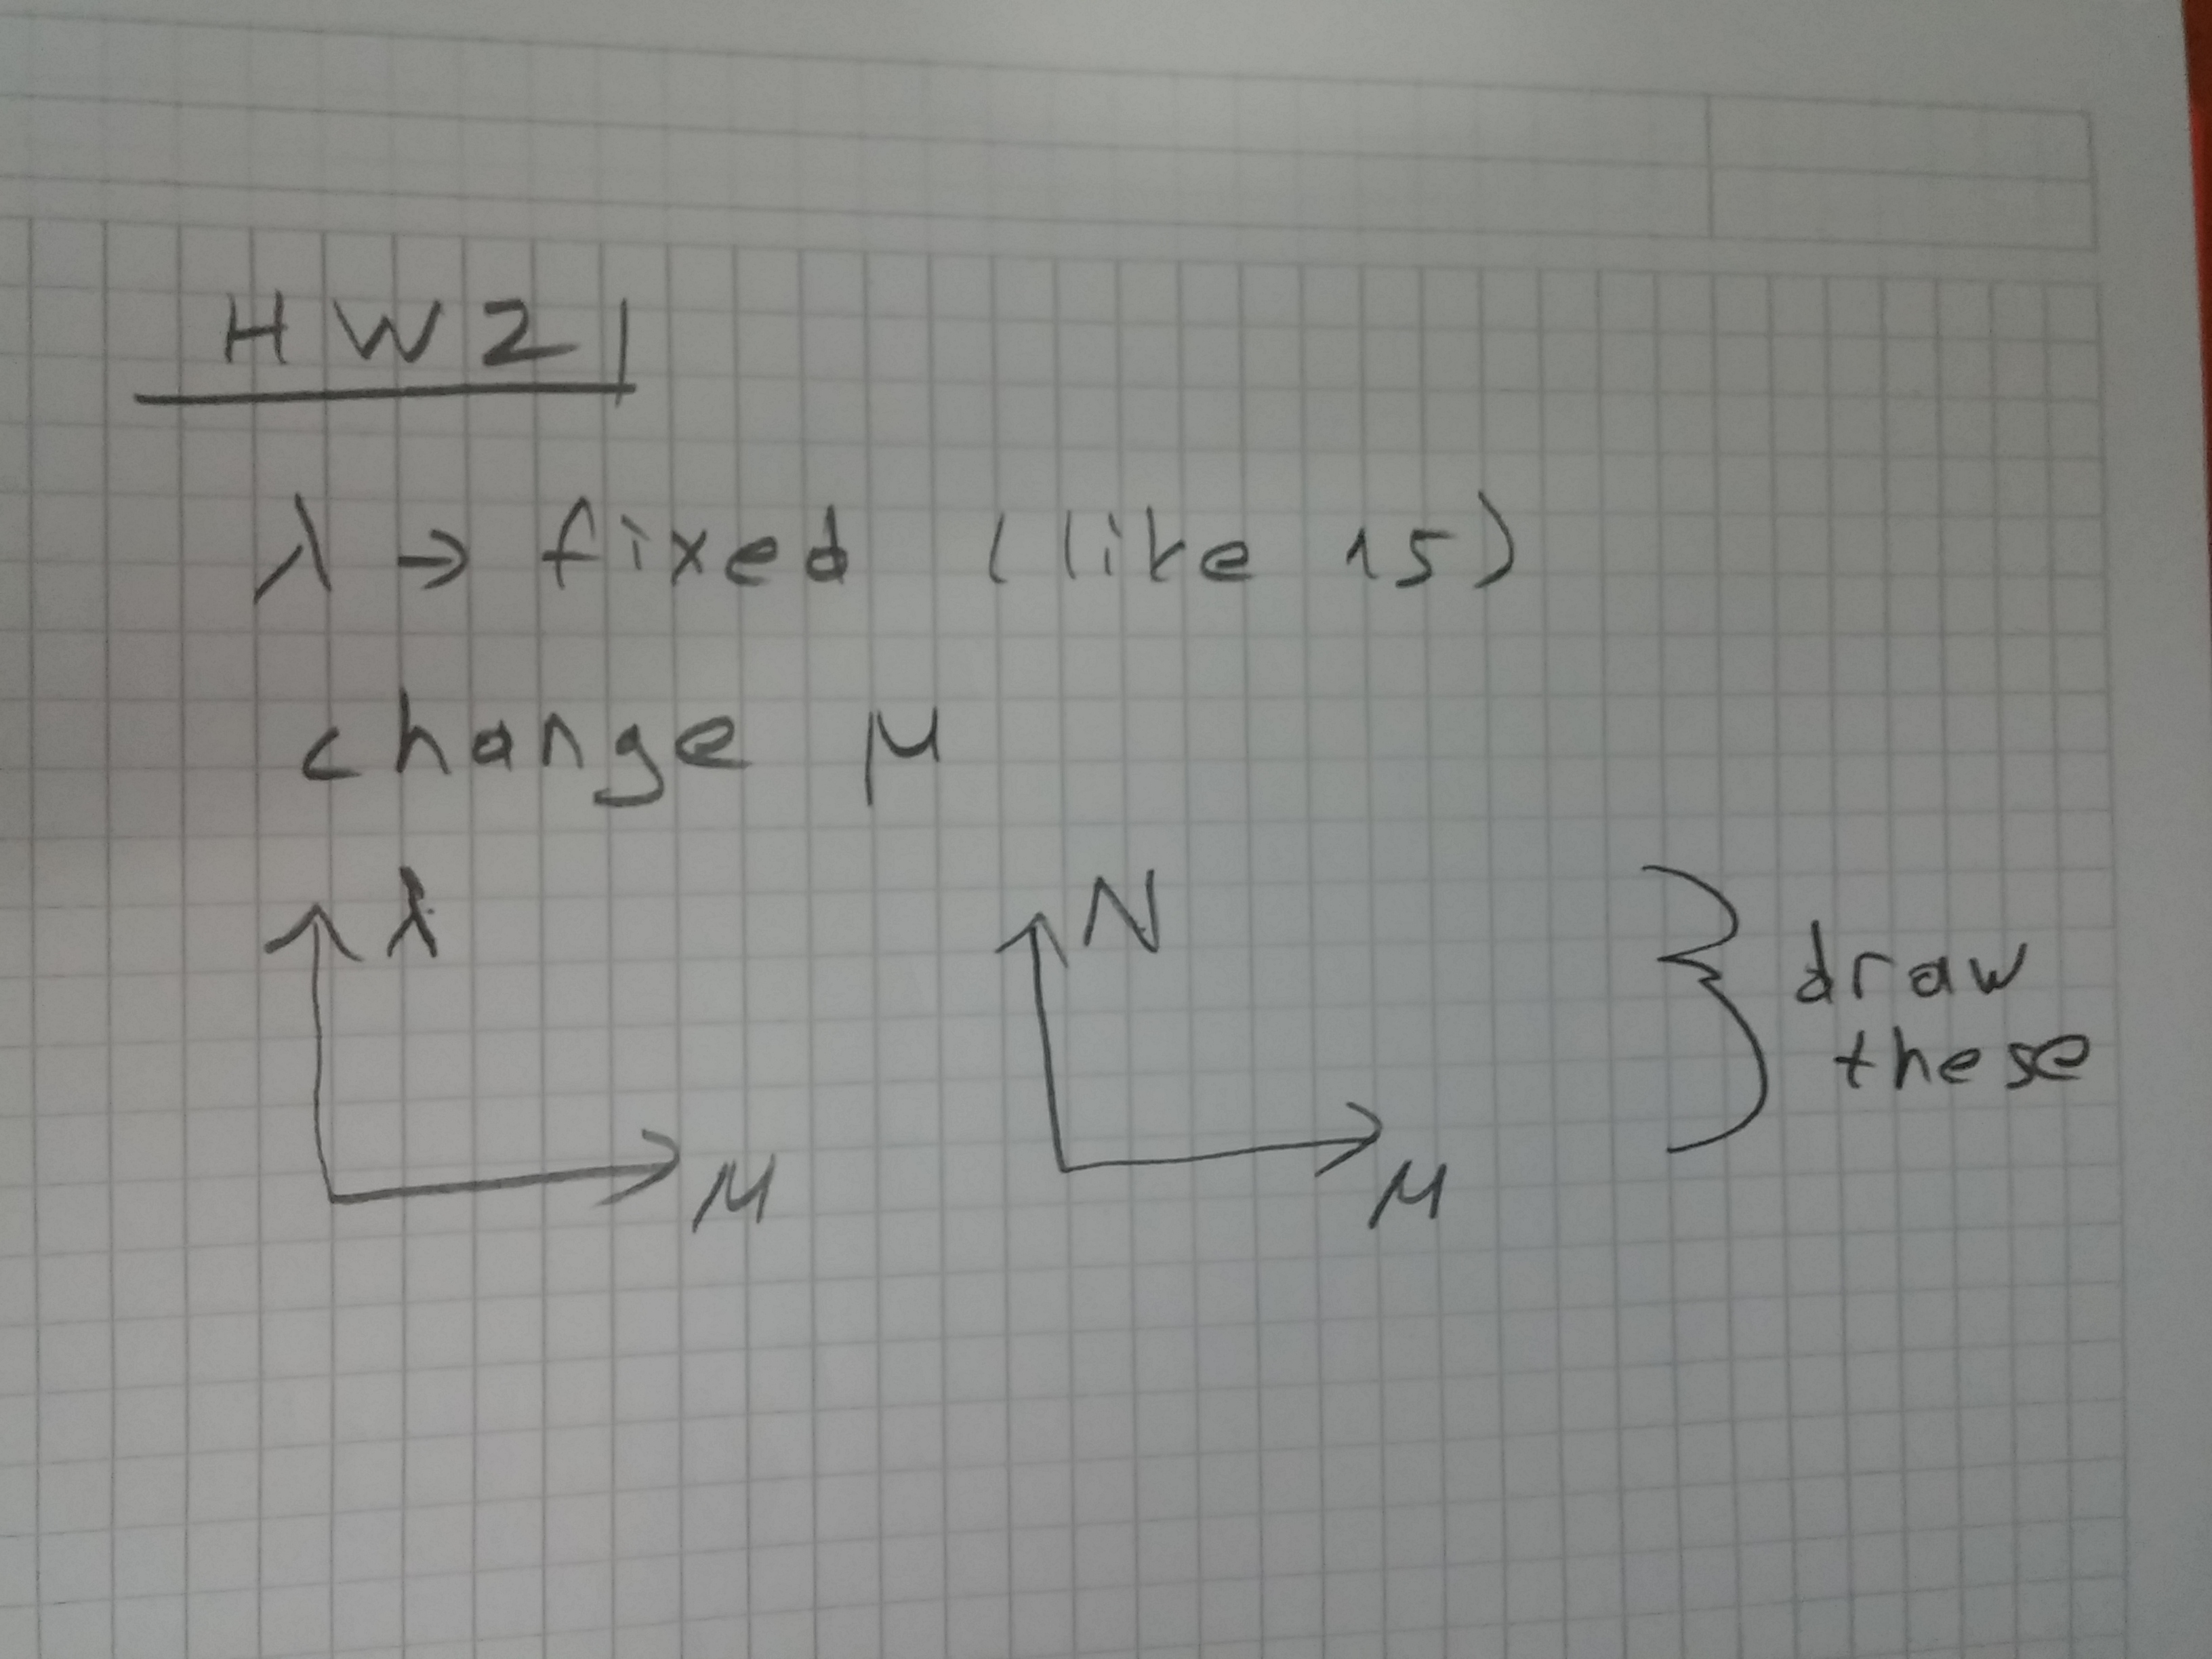 HW2
λ → fixed (like 15)
change μ
λ
μ
N
μ
draw
these